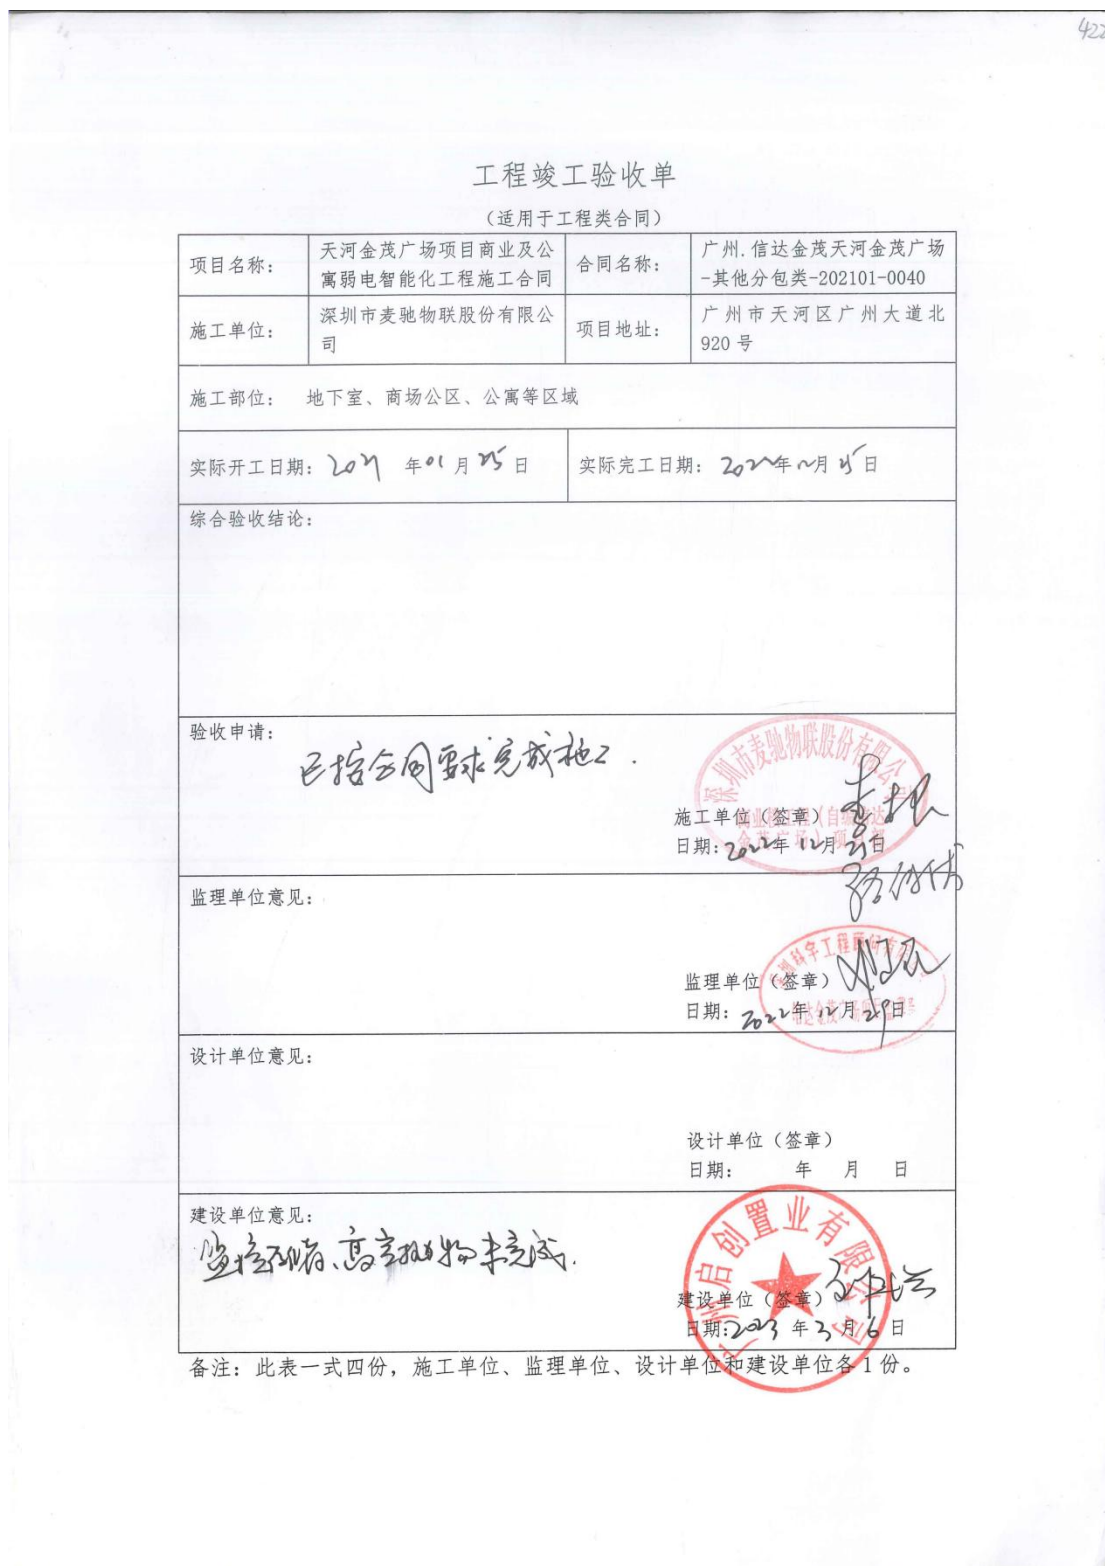 422
工程竣工验收单
（适用于工程类合同）
项目名称：
天河金茂广场项目商业及公
寓弱电智能化工程施工合同
合同名称：
广州.信达金茂天河金茂广场
-其他分包类-202101-0040
施工单位：
深圳市麦驰物联股份有限公
司
项目地址：
广州市天河区广州大道北
920号
施工部位： 地下室、商场公区、公寓等区域
实际开工日期：2021 年01月25日
实际完工日期：2022年12月25日
综合验收结论：
验收申请：
已按合同要求完成施工.
深圳市麦驰物联股份有限公司
施工单位（签章）
日期：2022年12月25日
监理单位意见：
监理单位（签章）
日期：2022年12月29日
设计单位意见：
设计单位（签章）
日期： 年 月 日
建设单位意见：
高空抛物未完成.
广州启创置业有限公司
建设单位（签章）
日期：2023年3月6日
备注：此表一式四份，施工单位、监理单位、设计单位和建设单位各1份。